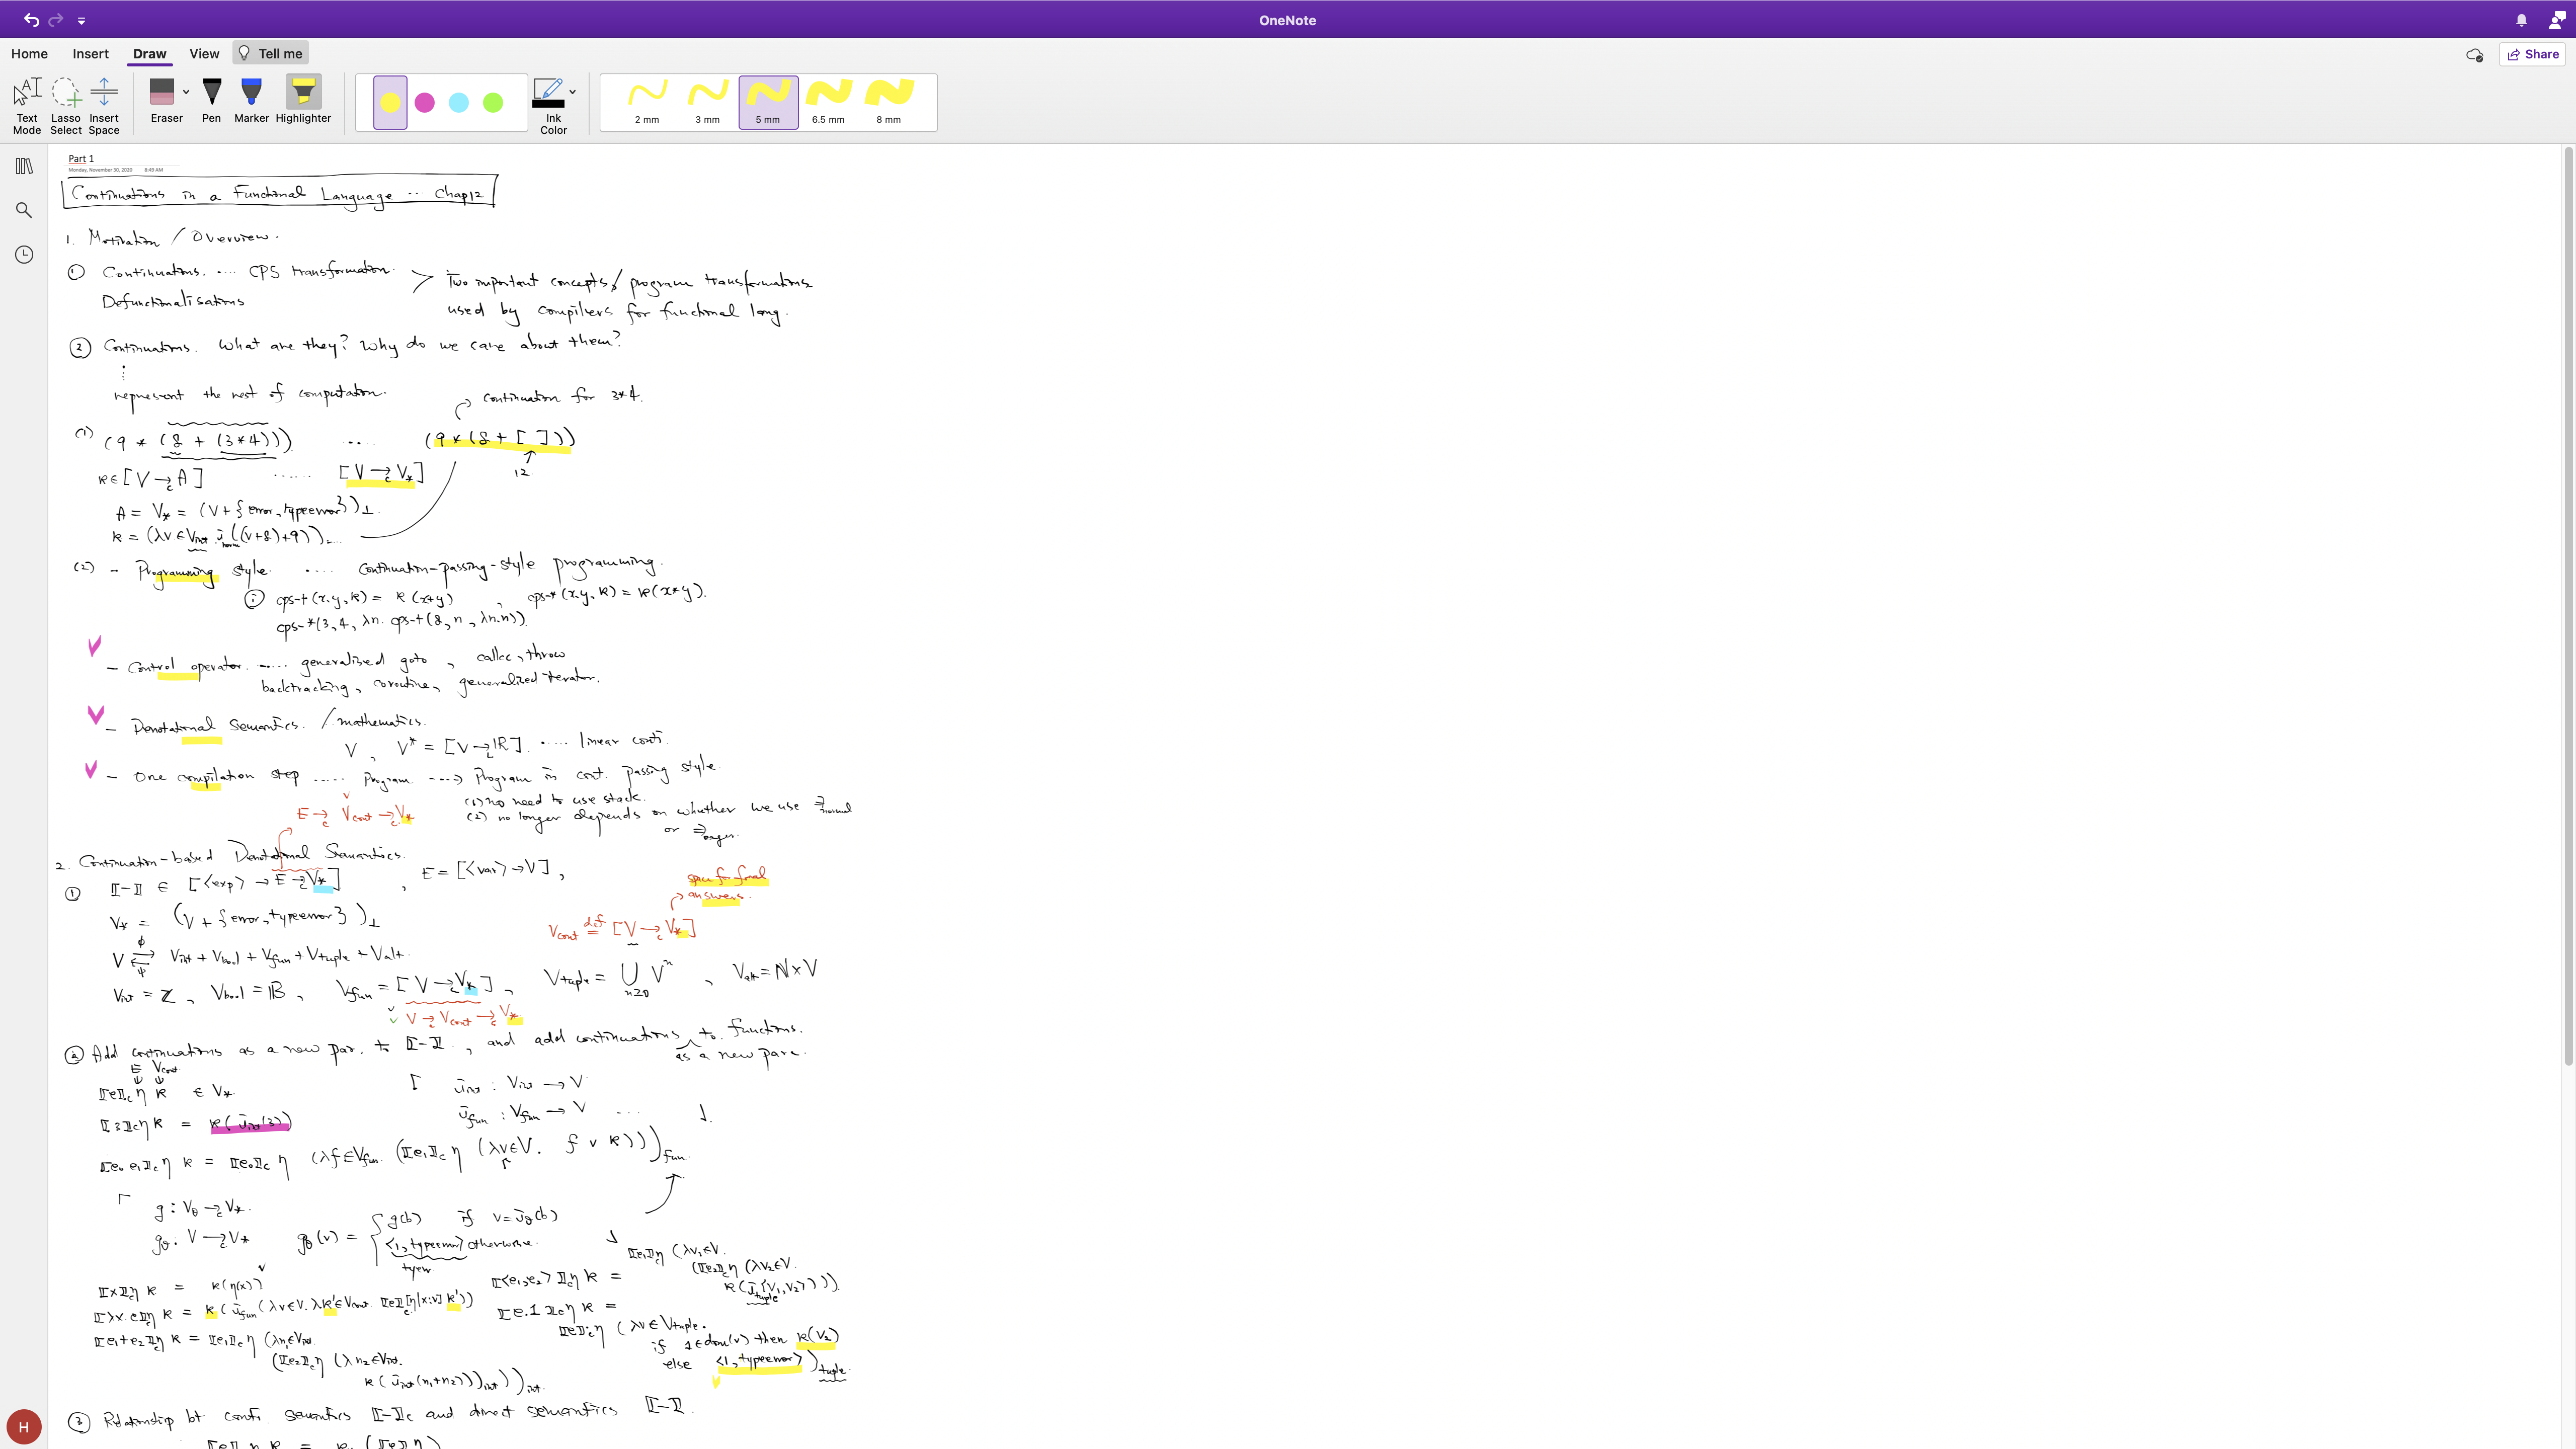 OneNote
Home Insert Draw View Tell me
Share
Text Mode Lasso Select Insert Space Eraser Pen Marker Highlighter Ink Color 2 mm 3 mm 5 mm 6.5 mm 8 mm
Part 1
Monday, November 30, 2020 8:49 AM
Continuations in a Functional Language ... Chap12
1. Motivation / Overview.
① Continuations. .... CPS transformation. > Two important concepts / program transformations
Defunctionalisations used by compilers for functional lang.
② Continuations. What are they? Why do we care about them?
represent the rest of computation.
continuation for 3*4.
(1) (9 * (8 + (3*4))) ..... (9*(8+[ ]))
12
κ∈[V →c A] ...... [V →c V*]
A = V* = (V + {error, typeerror})⊥.
κ = (λv∈Vint. ((v+8)+9))
(2) - Programming style .... Continuation-passing-style programming.
① cps-+(x,y,κ) = κ(x+y) , cps-*(x,y,κ) = κ(x*y).
cps-*(3, 4, λn. cps-+(8, n, λn.n))
- Control operator. ..... generalised goto, callcc, throw
backtracking, coroutine, generalized iterator.
- Denotational semantics. / mathematics.
V , V* = [V →c ℝ]. ..... linear cont.
- One compilation step ..... program ---> program in cont. passing style.
(1) no need to use stack.
E →c Vcont →c V*
(2) no longer depends on whether we use ⇒normal
or ⇒eager.
2. Continuation-based Denotational Semantics.
① ⟦-⟧ ∈ [<exp> → E →c V*] , E = [<var> → V],
space for final
answers.
V* = (V + {error, typeerror})⊥
Vcont def= [V →c V*]
V ϕ⇄ψ Vint + Vbool + Vfun + Vtuple + Valt.
Vint = ℤ, Vbool = 𝔹, Vfun = [V →c V*], Vtuple = ⋃n≥0 Vⁿ , Valt = ℕ×V
V →c Vcont →c V*
② Add continuations as a new par. to ⟦-⟧, and add continuations to functions.
as a new para.
E Vcont
⟦e⟧c η κ ∈ V*
ῑint : Vint → V
ῑfun : Vfun → V ...
⟦3⟧c η κ = κ(ῑint(3))
⟦e₀ e₁⟧c η κ = ⟦e₀⟧c η (λf∈Vfun. (⟦e₁⟧c η (λv∈V. f v κ)))fun.
g : Vθ →c V*.
gθ : V →c V* gθ(v) = { g(b) if v = ῑθ(b)
<1, typeerror> otherwise.
tyerr
⟦x⟧c η κ = κ(η(x))
⟦λx.e⟧c η κ = κ(ῑfun(λv∈V. λκ'∈Vcont. ⟦e⟧c[η|x:v] κ'))
⟦e₁+e₂⟧c η κ = ⟦e₁⟧c η (λn₁∈Vint.
(⟦e₂⟧c η (λn₂∈Vint.
κ(ῑint(n₁+n₂)))int))int.
⟦<e₁,e₂>⟧c η κ = ⟦e₁⟧c η (λv₁∈V.
(⟦e₂⟧c η (λv₂∈V.
κ(ῑtuple<v₁,v₂>)))).
⟦e.1⟧c η κ =
⟦e⟧c η (λv∈Vtuple.
if 1∈dom(v) then κ(v₂)
else <1, typeerror>)tuple.
③ Relationship bt conti. semantics ⟦-⟧c and direct semantics ⟦-⟧.
⟦e⟧c η κ = κ (⟦e⟧η)
H